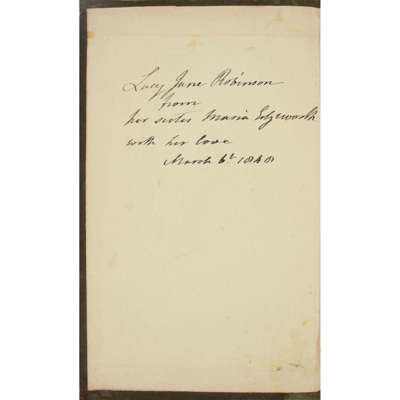 Lucy Jane Robinson
from
her sister Maria Edgeworth
with her love
March 6t 1848